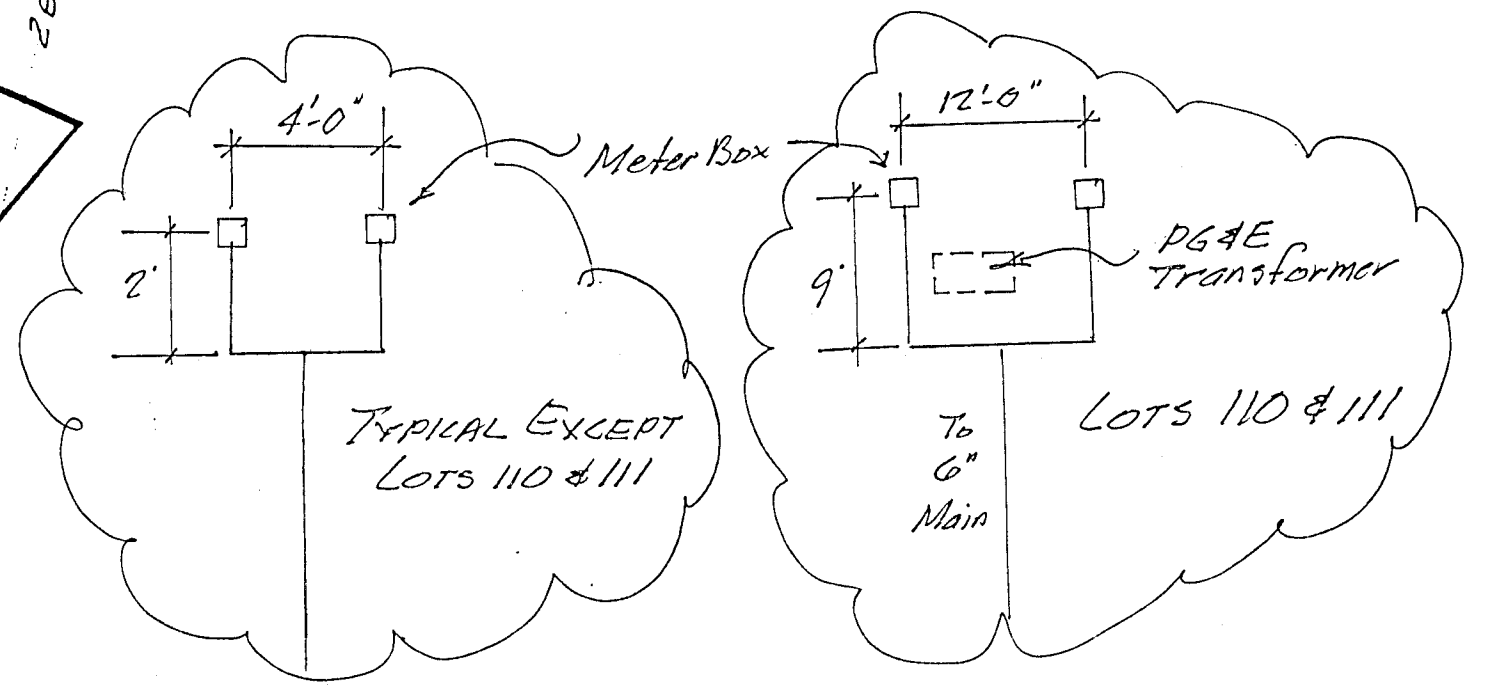 4'-0"
Meter Box
2'
TYPICAL EXCEPT
LOTS 110 & 111
12'-0"
9'
PG&E
Transformer
To
6"
Main
LOTS 110 & 111